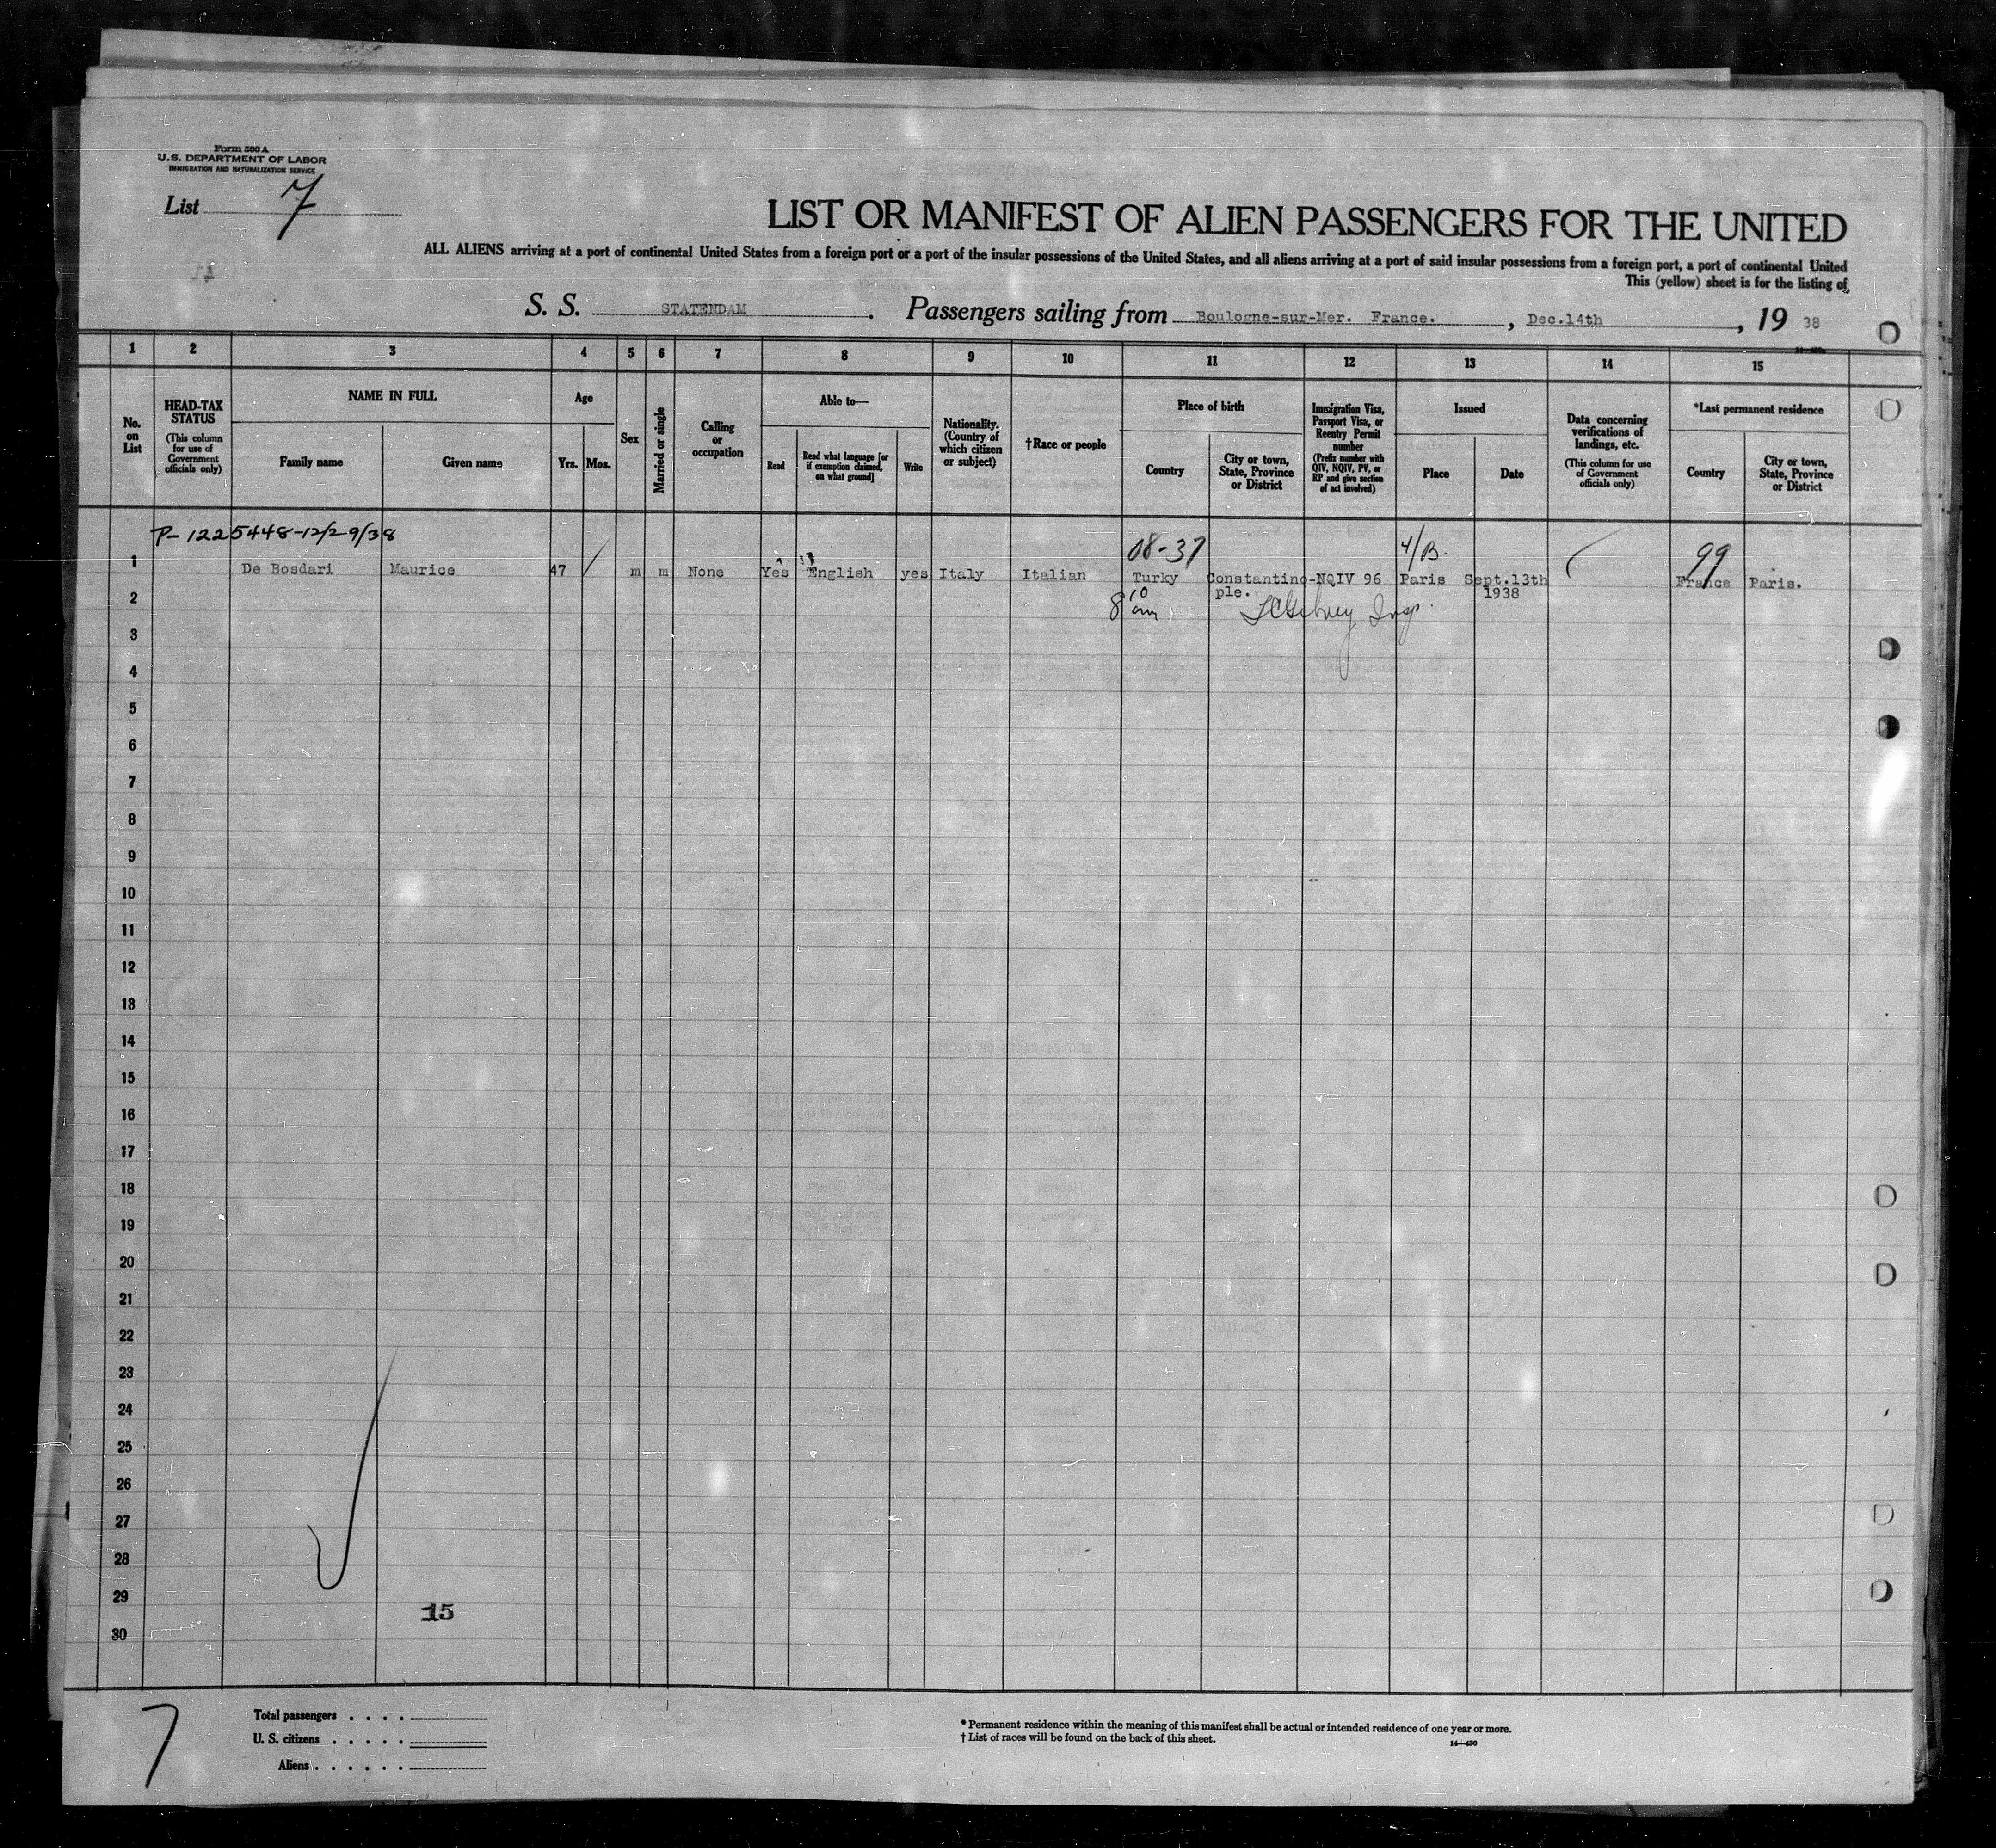 Form 500 A
U.S. DEPARTMENT OF LABOR
IMMIGRATION AND NATURALIZATION SERVICE
List 7
LIST OR MANIFEST OF ALIEN PASSENGERS FOR THE UNITED
ALL ALIENS arriving at a port of continental United States from a foreign port or a port of the insular possessions of the United States, and all aliens arriving at a port of said insular possessions from a foreign port, a port of continental United
This (yellow) sheet is for the listing of
S. S. STATENDAM. Passengers sailing from Boulogne-sur-Mer. France., Dec.14th, 19 38
1 2 3 4 5 6 7 8 9 10 11 12 13 14 15
No. on List
HEAD-TAX STATUS
(This column for use of Government officials only)
NAME IN FULL
Family name
Given name
Age
Yrs. Mos.
Sex
Married or single
Calling or occupation
Able to—
Read
Read what language [or if exemption claimed, on what ground]
Write
Nationality. (Country of which citizen or subject)
†Race or people
Place of birth
Country
City or town, State, Province or District
Immigration Visa, Passport Visa, or Reentry Permit number
(Prefix number with QIV, NQIV, PV, or RP and give section of act involved)
Issued
Place
Date
Data concerning verifications of landings, etc.
(This column for use of Government officials only)
*Last permanent residence
Country
City or town, State, Province or District
P-1225448-12/29/38
08-37 4/B. 99
1 De Bosdari Maurice 47 m m None Yes English yes Italy Italian Turky Constantino- NQIV 96 Paris Sept.13th France Paris.
ple. 1938
2
8 10 am Insp.
3
4
5
6
7
8
9
10
11
12
13
14
15
16
17
18
19
20
21
22
23
24
25
26
27
28
29
15
30
7
Total passengers . . . .
U. S. citizens . . . . .
Aliens . . . . . .
* Permanent residence within the meaning of this manifest shall be actual or intended residence of one year or more.
† List of races will be found on the back of this sheet.
14—430